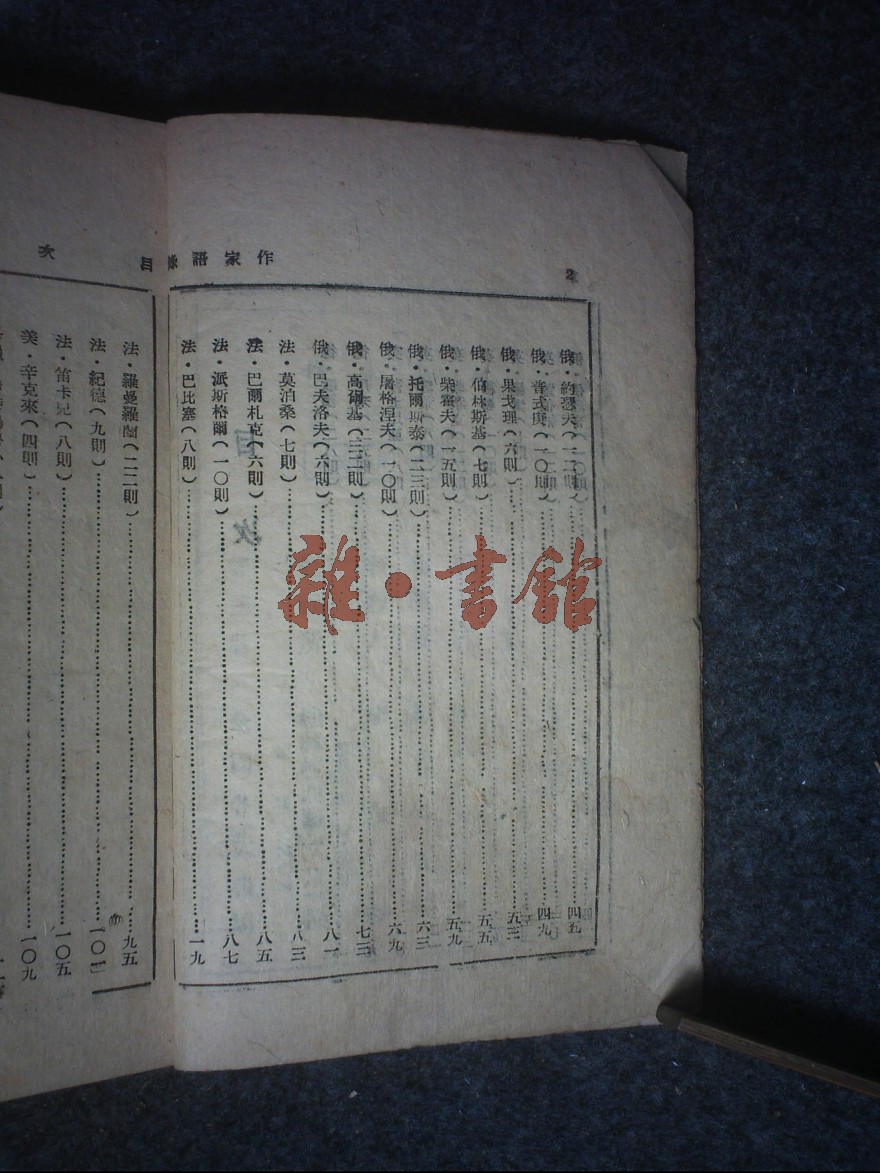 作家語錄
2
俄·約瑟夫(一二則)……四五
俄·普式庚(一〇則)……四九
俄·果戈理(六則)……五三
俄·伯林斯基(七則)……五五
俄·柴霍夫(一五則)……五九
俄·托爾斯泰(二三則)……六三
俄·屠格涅夫(一〇則)……六九
俄·高爾基(三二則)……七三
俄·巴夫洛夫(六則)……八一
法·莫泊桑(七則)……八三
法·巴爾札克(六則)……八五
法·派斯格爾(一〇則)……八七
法·巴比塞(八則)……一九
目次
法·羅曼羅蘭(二二則)……九五
法·紀德(九則)……一〇一
法·笛卡兒(八則)……一〇五
美·辛克來(四則)……一〇九
雜·書館